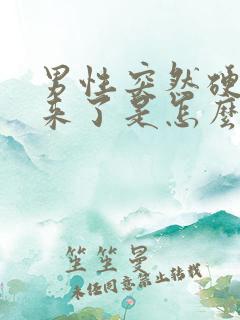 男性突然硬
来了是怎么
笙笙曼
未经同意禁止转载